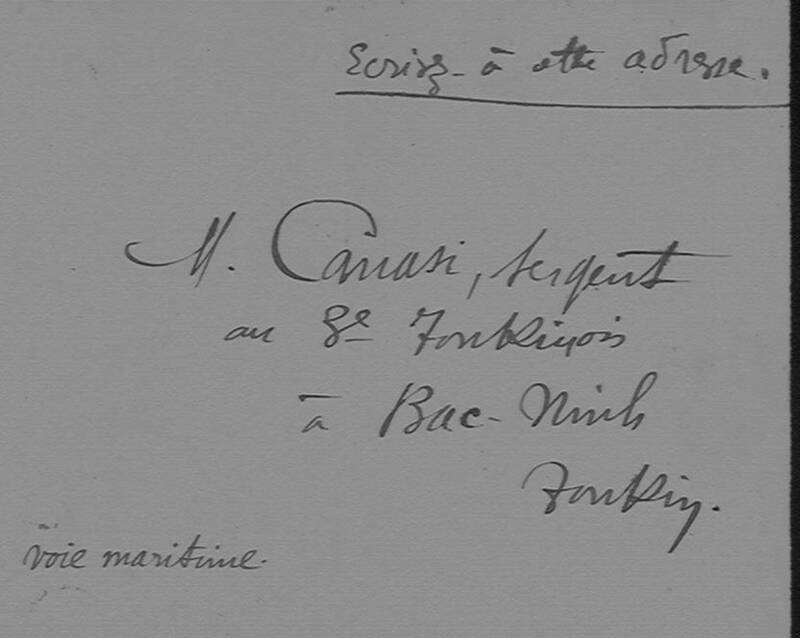 Ecrivez à cette adresse.
M. Canasi, sergent
au 8e Tonkinois
à Bac-Ninh
Tonkin.
voie maritime.